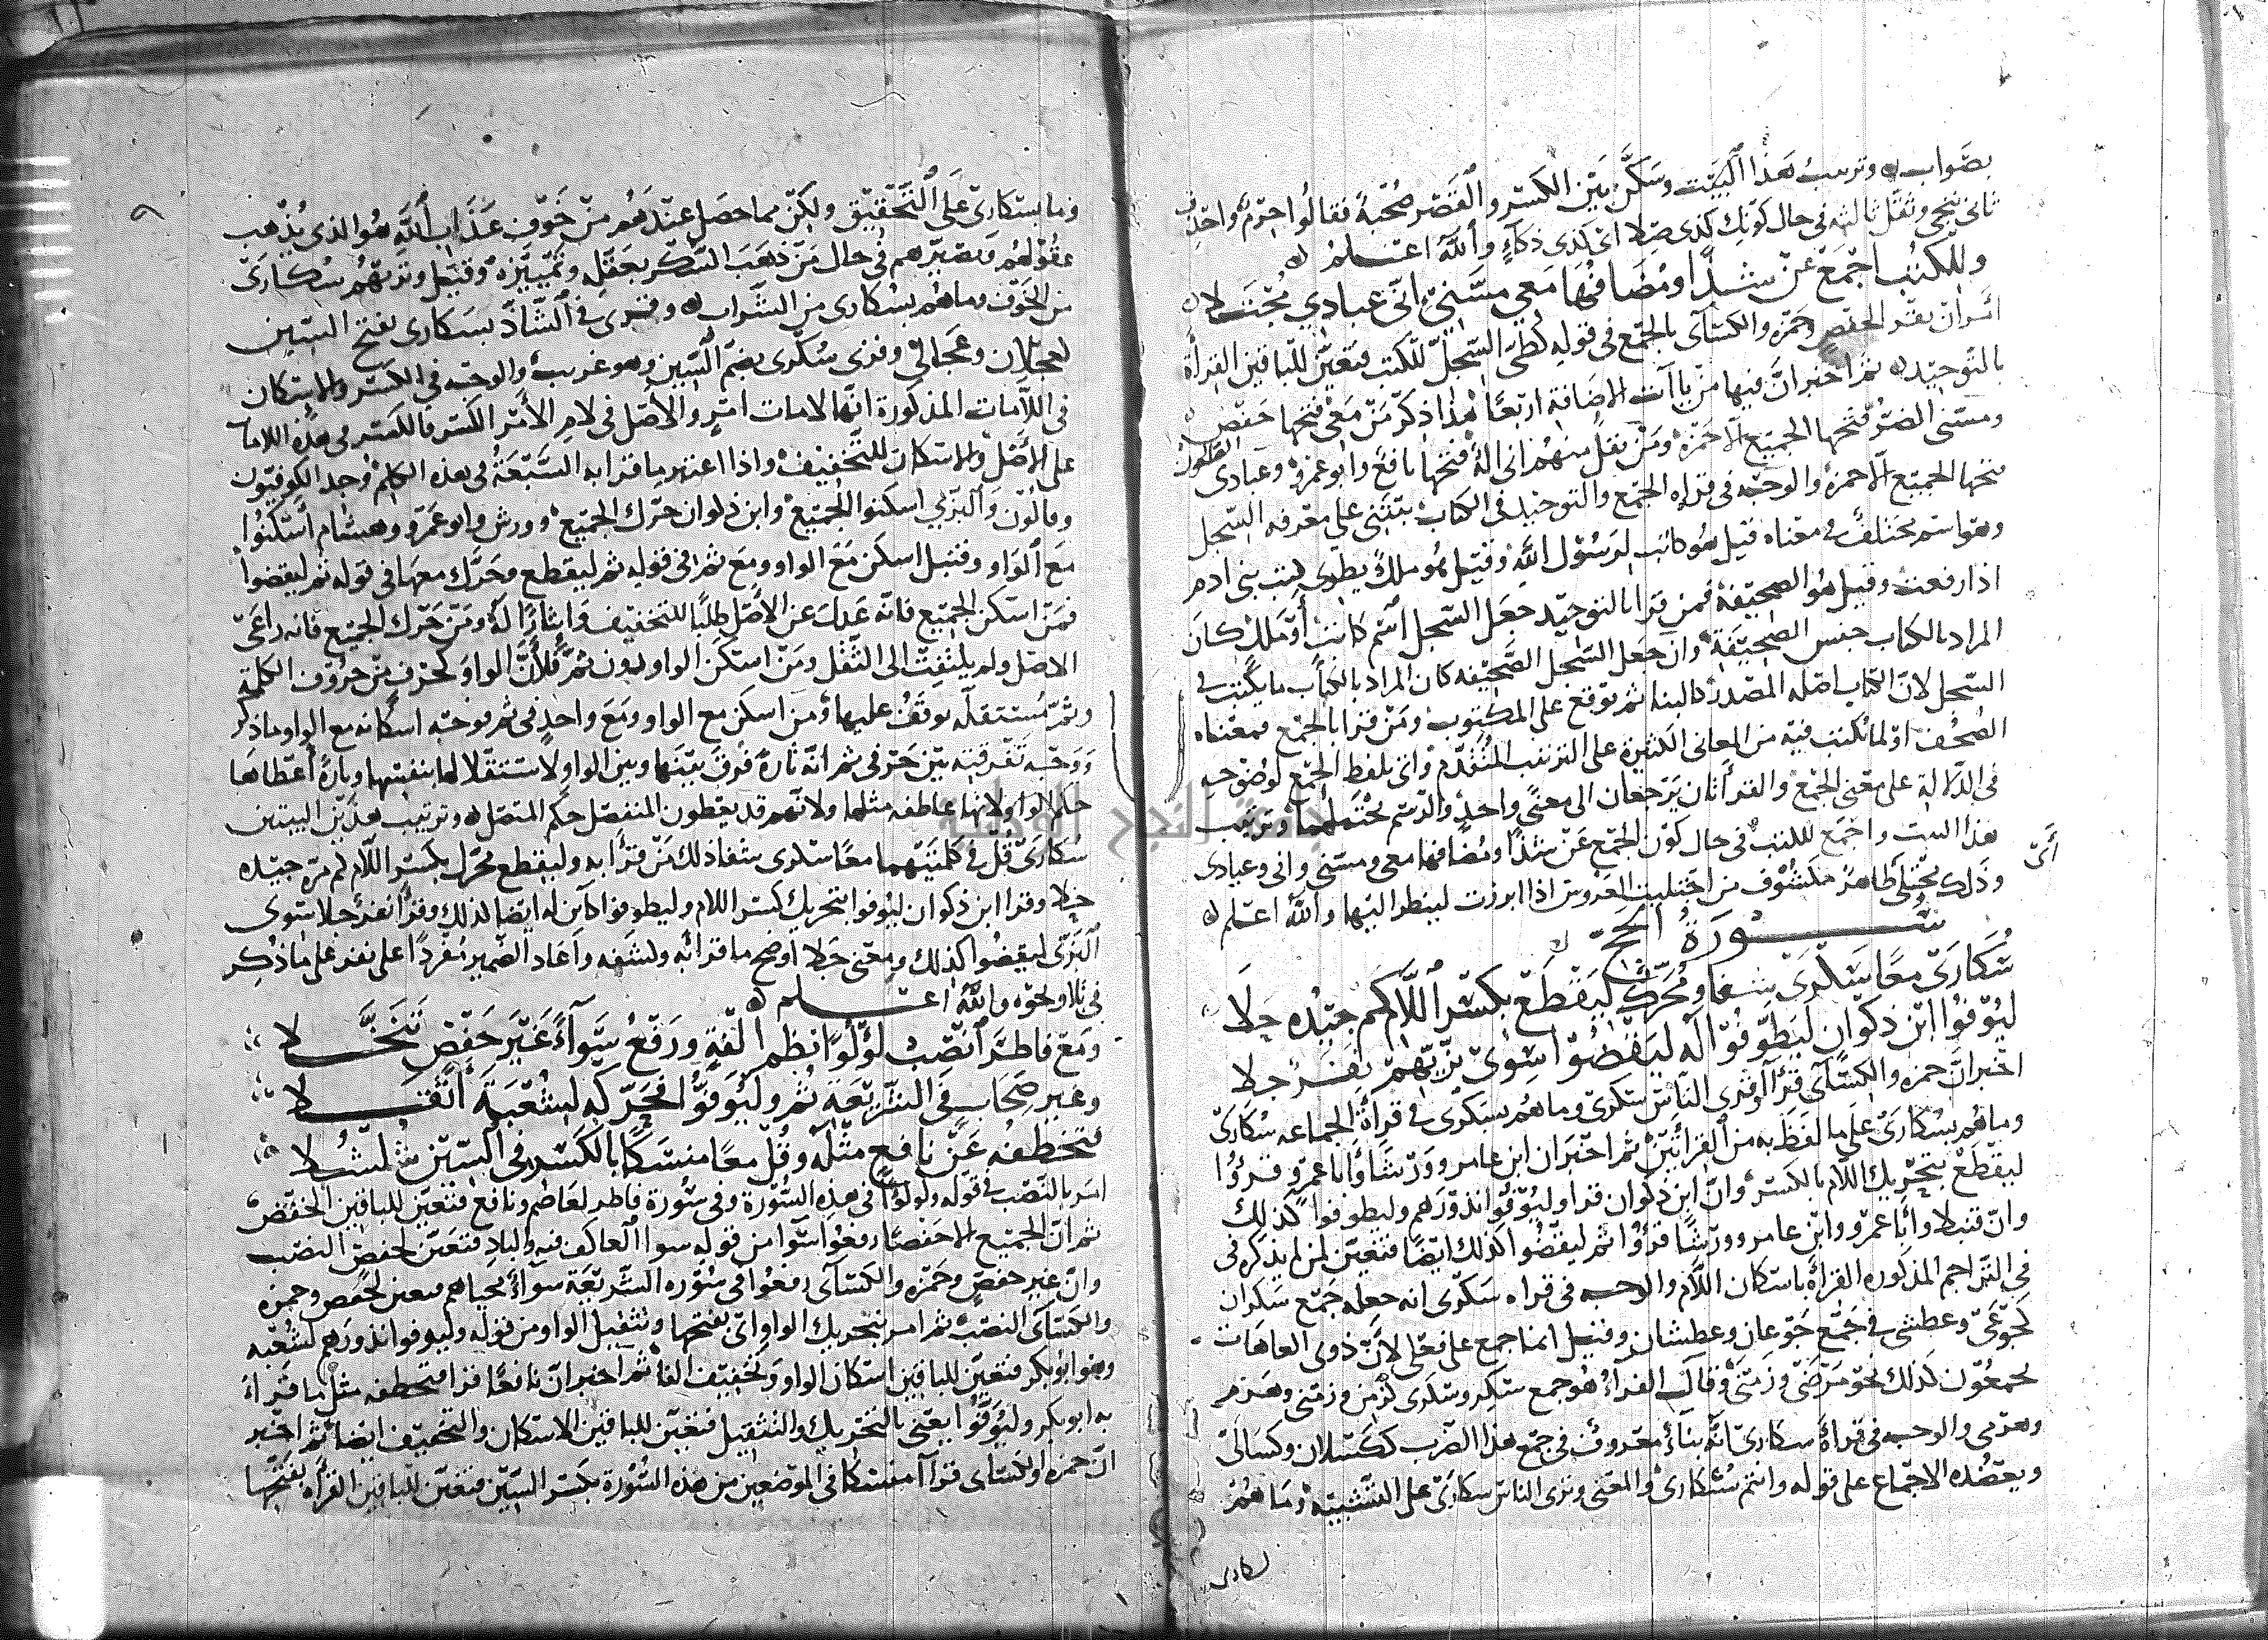 بصواب ه وترتيب هذا البيت وسكن بين الكسر والقصر صحبة فقالوا حرم واحذف
ثاني ننجي وثقل ثالثه في حال كونك كذى صلا اى كذى ذكاء والله اعلم ه
وللكتب اجمع عن شذا ومضافها معي مسني اني عبادي مجتلا
امر ان يقرا لحفص وحمزه والكسآى بالجمع في قوله لطي السجل للكتب فتعين للباقين القراة
بالتوحيد ه ثم اخبر ان فيها من ياآت الاضافة اربعا هذا ذكر من معي فتحها حفص
ومسني الضر فتحها الجميع الا حمزه ومن يقل منهم اني اله فتحها نافع وابو عمرو وعبادى الصالحون
فتحها الجميع الا حمزه والوجه في قراه الجمع والتوحيد في الكتاب يبتنى على معرفه السجل
وهو اسم مختلف في معناه قيل هو كاتب لرسول الله وقيل هو ملك يطوى كتب بنى ادم
اذا رفعت وقيل هو الصحيفة فمن قرا بالتوحيد جعل السجل اسم كاتب او ملك كان
المراد بالكتاب جنس الصحيفة وان جعل السجل الصحيفه كان المراد بالكتاب ما يكتب في
السجل لان الكتاب اصله المصدر كالبنا ثم توقع على المكتوب ومن قرا بالجمع فمعناه
الصحف او لما يكتب فيه من المعانى الكثيرة على الترتيب المتقدم واتى بلفظ الجمع لوضوحه
فى الدلالة على معنى الجمع والقرأتان يرجعان الى معنى واحد والرسم يحتملهما وترتيب
هذا البيت واجمع للكتب في حال كون الجمع عن شذا ومضافها معى ومسنى وانى وعبادى
اى
وذلك مجتلى ظاهر مكشوف من اجتليت العروس اذا ابرزت لينظر اليها والله اعلم ه
سورة الحج ه
سكارى معا سكرى شفا ومحرك ليقطع بكسر اللام كم جيده حلا
ليوفوا ابن ذكوان ليطوفوا له ليقضوا سوى بزيهم نفر جلا
اخبر ان حمزه والكسآى قرآ وترى الناس سكرى وما هم بسكرى في قراة الجماعه سكارى
وما هم بسكارى على ما لفظ به من القرأتين ثم اخبر ان ابن عامر وورشا وابا عمرو قرؤا
ليقطع بتحريك اللام بالكسر وان ابن ذكوان قرا وليوفوا نذورهم وليطوفوا كذلك
وان قنبلا وابا عمرو وابن عامر وورشا قرؤا ثم ليقضوا كذلك ايضا فتعين لمن لم يذكره فى
فى التراجم المذكوره القراة باسكان اللام والوجه في قراه سكرى انه جعله جمع سكران
كجوعى وعطشى في جمع جوعان وعطشان وقيل انما جمع على فعلى لان ذوى العاهات
يجمعون كذلك نحو مرضى وزمنى وقال الفراء هو جمع سكر وسكرى كزمن وزمنى وهرم
وهرمى والوجه في قراة سكارى انه بناء معروف في جمع هذا الضرب ككسلان وكسالى
ويعضده الاجماع على قوله وانتم سكارى والمعنى وترى الناس سكارى على التشبيه وما هم
سكارى
وما بسكارى على التحقيق ولكن مما حصل عندهم من خوف عذاب الله هو الذى يذهب
عقولهم ويصيرهم في حال من ذهب السكر بعقله وتمييزه وقيل وتريهم سكارى
من الخوف وما هم بسكارى من الشراب ه وقرى في الشاذ بسكارى بفتح السين
لعجلان وعجالى وقرى سكرى بضم السين وهو غريب والوجه في الكسر والاسكان
فى اللامات المذكورة انها لامات امر والاصل في لام الامر الكسر فالكسر في هذه اللامات
على الاصل والاسكان للتخفيف واذا اعتبر ما قرا به السبعة في هذه الكلم وجد الكوفيون
وقالون والبزي اسكنوا الجميع وابن ذكوان حرك الجميع وورش وابو عمرو وهشام اسكنوا
مع الواو وقنبل اسكن مع الواو ومع ثم في قوله ثم ليقطع وحرك معها في قوله ثم ليقضوا
فمن اسكن الجميع فانه عدل عن الاصل طلبا للتخفيف وايثارا له ومن حرك الجميع فانه راعى
الاصل ولم يلتفت الى الثقل ومن اسكن الواو دون ثم فلان الواو كحرف من حروف الكلمة
وثم مستقله يوقف عليها ومن اسكن مع الواو ومع واحد في ثم فوجه اسكانه مع الواو ما ذكر
ووجه تفرقته بين حرفى ثم انه تارة فرق بينها وبين الواو لاستقلالها بنفسها وتارة اعطاها
حكم الواو لانها عاطفه مثلها ولانهم قد يعطون المنفصل حكم المتصل ه وترتيب هذين البيتين
سكارى قل في كلمتيهما معا سكرى شفا ذلك من قرا به وليقطع محرك بكسر اللام كم مره جيده
حلا وقرا ابن ذكوان ليوفوا بتحريك كسر اللام وليطوفوا كآين له ايضا كذلك وقرا نفر جلا سوى
البزى ليقضوا كذلك ومعنى جلا اوضح ما قرا به ولشفه واعاد الضمير مفردا على نفر على ما ذكر
فى تلا ونحوه والله اعلم ه
ومع فاطر انصب لؤلؤا نظم الفة ورفع سوآء غير حفص تنخلا
وغير صحاب في الشريعة ثم وليوفوا فحركه لشعبة اثقلا
فتخطفه عن نافع مثله وقل معا منسكا بالكسر في السين شلشلا
امر بالنصب في قوله ولولوءا في هذه السورة وفى سورة فاطر لعاصم ونافع فتعين للباقين الخفض
ثم ان الجميع الا حفصا رفعوا سوآ من قوله سوا العاكف فيه والباد فتعين لحفص النصب
وان غير حفص وحمزه والكسآى رفعوا في سوره الشريعة سوآء محياهم فتعين لحفص وحمزه
والكسآى النصب ثم امر بتحريك الواو اى بفتحها وتثقيل الواو من قوله وليوفوا نذورهم لشعبه
وهو ابو بكر فتعين للباقين اسكان الواو وتخفيف الفا ثم اخبر ان نافعا قرا فتخطفه مثل ما قراء
به ابو بكر وليوفوا يعنى بالتحريك والتثقيل فتعين للباقين الاسكان والتخفيف ايضا ثم اخبر
ان حمزه والكسآى قرآ منسكا في الموضعين من هذه السورة بكسر السين فتعين للباقين القراه بفتحها